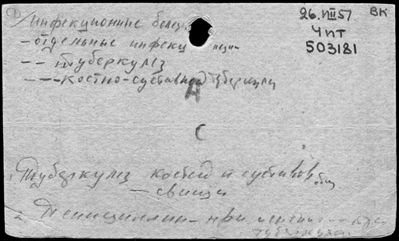 Инфекционные болез
– отдельные инфекц
– – туберкулёз
– – – костно-суставной туберкул
26.VIII 57
ВК
Чпт
503181
А
С
Туберкулёз костей и суставов
– свищи
Пенициллин – при